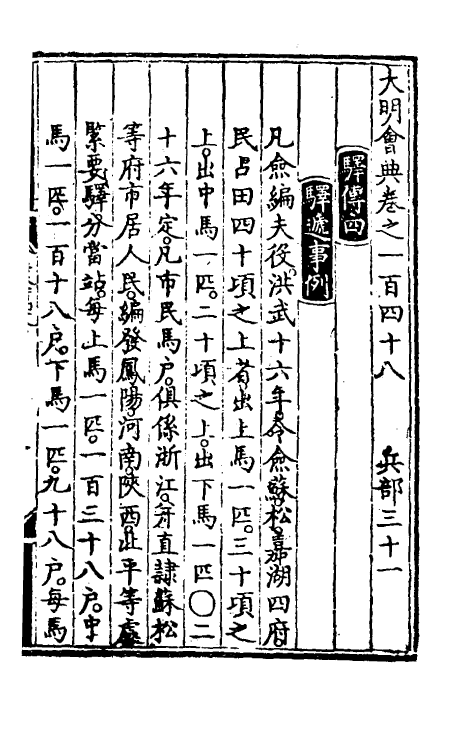 大明會典卷之一百四十八　兵部三十一
驛傳四
驛遞事例
凡僉編夫役。洪武十六年。令僉蘇。松。嘉。湖四府。
民占田四十頃之上者。出上馬一匹。三十頃之
上。出中馬一匹。二十頃之上。出下馬一匹〇二
十六年定。凡市民馬戶。俱係浙江。并直隸蘇松
等府市居人民。編發鳳陽。河南。陝西。北平等處
緊要驛分當站。每上馬一匹。一百三十八戶。中
馬一匹。一百十八戶。下馬一匹。九十八戶。每馬